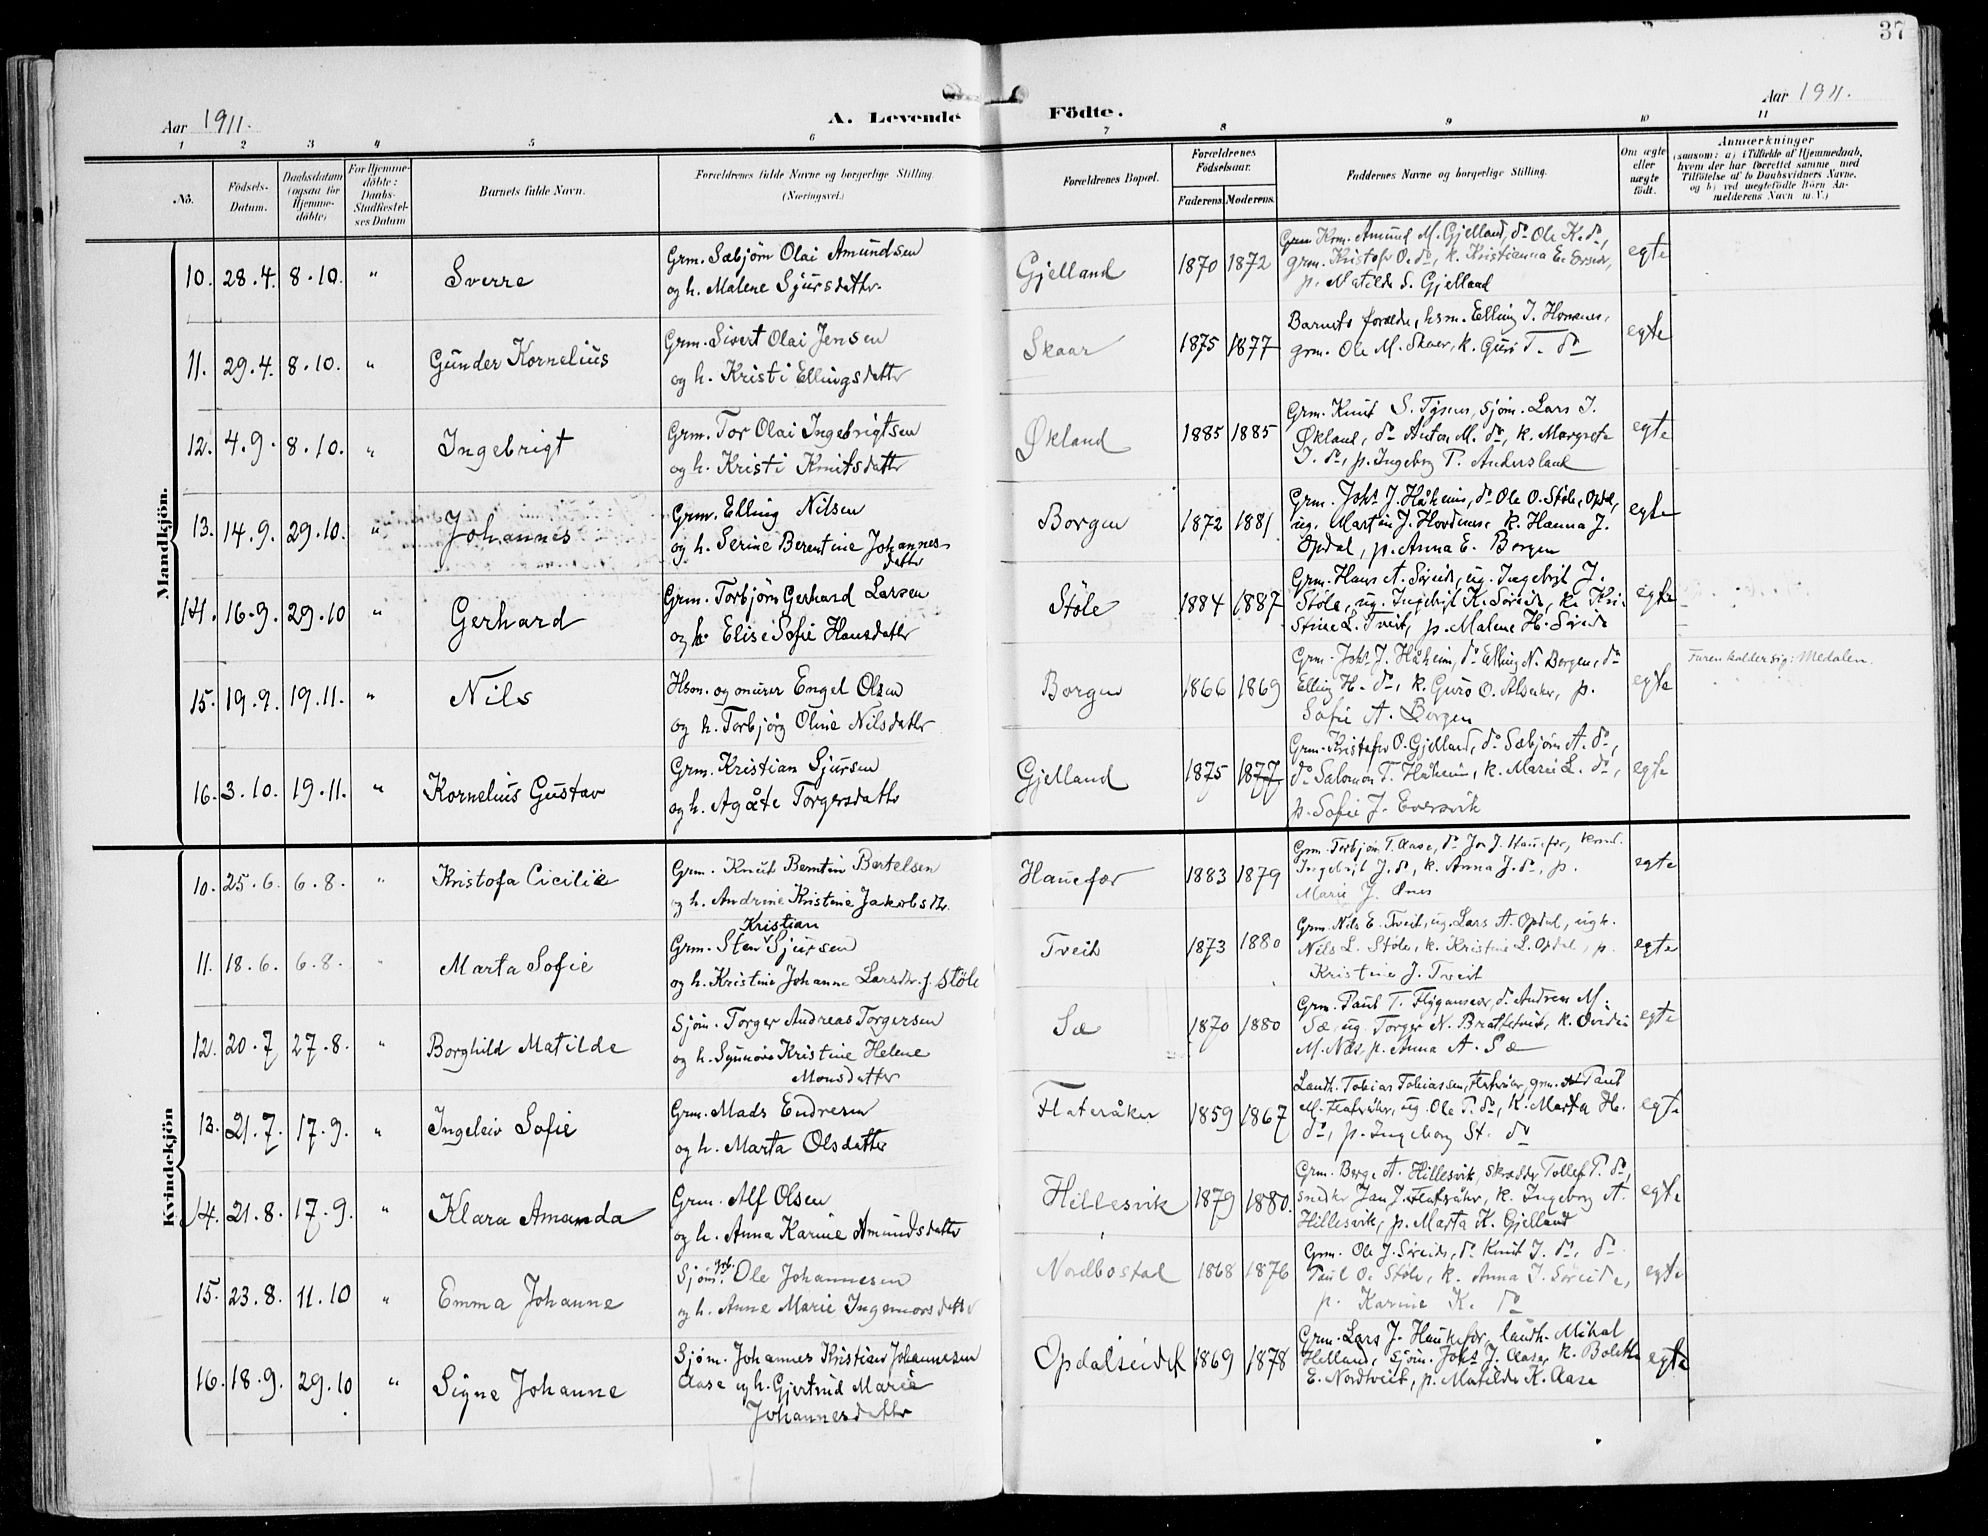 37
Aar 1911.
A. Levende Födte.
Aar 1911.
1 2 3 4 5 6 7 8 9 10 11
No.
Födsels-Datum.
Daabsdatum (ogsaa for Hjemmedöbte)
For Hjemmedöbte: Daabs Stadfæstelses Datum
Barnets fulde Navn.
Forældrenes fulde Navne og borgerlige Stilling. (Næringsvei.)
Forældrenes Bopæl.
Forældrenes Födselsaar.
Faderens. Moderens.
Faddernes Navne og borgerlige Stilling.
Om ægte eller uægte födt.
Anmærkninger
(saasom: a) i Tilfælde af Hjemmedaab, hvem der har forrettet samme med Tilföielse af to Daabsvidners Navne, og b) ved uægtefödte Börn Anmelderens Navn m. V.)
Mandkjön.
10. 28.4. 8.10. " Sverre
Grm. Sæbjørn Olai Amundsen
og h. Malene Sjursdatter
Gjelland 1870 1872
Krm. Amund M. Gjelland, do Ole K. do,
grm. Kristofer O. do, k. Kristianna E.
p. Matilde S. Gjelland
egte
11. 29.4. 8.10. " Gunder Kornelius
Grm. Sivert Olai Jensen
og h. Kristi Ellingsdatter
Skaar 1875 1877
Barnets forældre, hsm. Elling I.
grm. Ole M. Skaar, k. Guro T. do
egte
12. 4.9. 8.10. " Ingebrigt
Grm. Tor Olai Ingebrigtsen
og h. Kristi Knutsdatter
Økland 1885 1885
Grm. Knut S. sjøm. Lars I.
Økland, do Anton M. do, k. Margrete
I. do, p. Ingeborg T. Andersland
egte
13. 14.9. 29.10. " Johannes
Grm. Elling Nilsen
og h. Serine Berentine Johannes-
datter
Borgen 1872 1881
Grm. Johs J. Håheim, do Ole O. Støle, Opdal,
ug. Martin J. k. Hanna J.
Opdal, p. Anna E. Borgen
egte
14. 16.9. 29.10 " Gerhard
Grm. Torbjørn Gerhard Larsen
og h. Elise Sofie Hansdatter
Støle 1884 1887
Grm. Hans A. Søreide, ug. Ingebrigt J.
Støle, ug. Ingebrigt K. Søreide, k. Kri-
stine L. Tveit, p. Malene H. Søreide
egte
15. 19.9. 19.11. " Nils
Hsm. og murer Engel Olsen
og h. Torbjørg Oline Nilsdatter
Borgen 1866 1869
Grm. Johs J. Håheim, do Elling N. Borgen, do
Elling H. do, k. Guro O. p.
Sofie A. Borgen
egte
Faren kalder sig: Medalen.
16. 3.10. 19.11. " Kornelius Gustav
Grm. Kristian Sjursen
og h. Agåte Torgersdatter
Gjelland 1875 1877
Grm. Kristofer O. Gjelland, do Sæbjørn A. do,
do Salomon T. Håheim, k. Marie L. do,
p. Sofie J. Eversvik
egte
Kvindekjön
10. 25.6. 6.8. " Kristofa Cicilie
Grm. Knut Berntin Bertelsen
og h. Andrine Kristine Jakobsdtr.
Haukefær 1883 1879
Grm. Torbjørn T. Aase, do Jon J. Haukefær,
Ingebrigt J. do, k. Anna J. do, p.
Marie J. Ones
egte
11. 18.6. 6.8. " Marta Sofie
Kristian
Grm. Sten Sjursen
og h. Kristine Johanne Larsdtr. f. Støle
Tveit 1873 1880
Grm. Nils E. Tveit, ug. Lars A. Opdal, ugk.
Nils L. Støle, k. Kristine L. Opdal, p.
Kristine J. Tveit
egte
12. 20.7 27.8. " Borghild Matilde
Sjøm. Torger Andreas Torgersen
og h. Synnøve Kristine Helene
Monsdatter
Sæ 1870 1880
Grm. Paul T. Flygansvær, do Andreas M.
Sæ, ug. Torger N. k. Ovidia
M. Næs, p. Anna A. Sæ
egte
13. 21.7. 17.9. " Ingeleiv Sofie
Grm. Mads Endresen
og h. Marta Olsdatter
Flateråker 1859 1867
Landh. Tobias Tobiassen, Flateråker, grm. Paul
M. Flateråker, ug. Ole P. do, k. Marta H.
do, p. Ingeborg St. do
egte
14. 21.8. 17.9. " Klara Amanda
Grm. Alf Olsen
og h. Anna Karine Amundsdatter
Hillesvik 1879 1880.
Grm. Berge A. Hillesvik, skrædder Tollef P. do,
snedker Jan J. Flateråker, k. Ingeborg A.
Hillesvik, p. Marta K. Gjelland
egte
15. 23.8. 11.10 " Emma Johanne
Sjøm. Ole Johannesen
og h. Anne Marie Ingemorsdatter
Nordbostad 1868 1876
Grm. Ole J. Søreide, do Knut J. do, do
Paul O. Støle, k. Anna J. Søreide,
p. Karine K. do
egte
16. 18.9. 29.10 " Signe Johanne
Sjøm. Johannes Kristian Johannesen
Aase og h. Gjertrud Marie
Johannesdatter
Opdalseidet 1869 1878
Grm. Lars J. Haukefær, landh. Mikal
Helland, sjøm. Johs J. Aase, k. Bolette
E. Nordtveit, p. Matilde K. Aase
egte